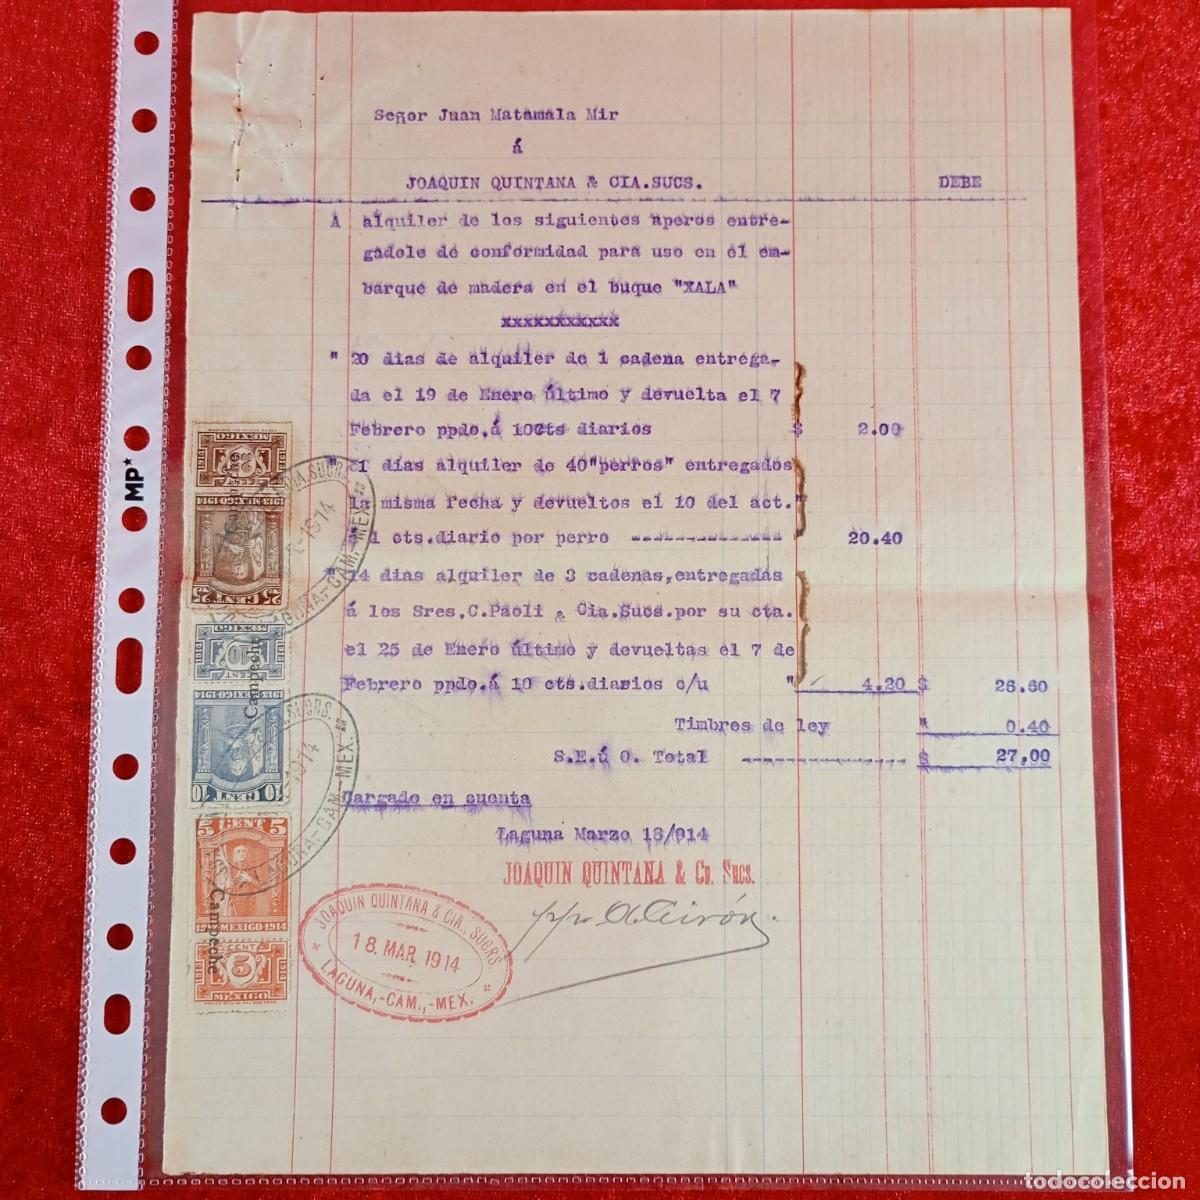 Señor Juan Matamala Mir
á
JOAQUIN QUINTANA & CIA.SUCS. DEBE
A alquiler de los siguientes aperos entre-
gadole de conformidad para uso en el em-
barque de madera en el buque "XALA"
xxxxxxxxxxx
" 20 dias de alquiler de 1 cadena entrega-
da el 19 de Enero último y devuelta el 7
Febrero ppdo.á 10Cts diarios $ 2.00
" 51 dias alquiler de 40"perros" entregados
la misma fecha y devueltos el 10 del act."
á 1 cts.diario por perro ---------------- 20.40
" 14 dias alquiler de 3 cadenas,entregadas
á los Sres,C.Paoli & Cia.Sucs.por su cta.
el 25 de Enero último y devueltas el 7 de
Febrero ppdo.á 10 cts.diarios c/u " 4.20 $ 26.60
Timbres de ley " 0.40
S.E.ú O. Total ---------------- $ 27,00
Cargado en cuenta
Laguna Marzo 18/914
JOAQUIN QUINTANA & Co. Sucs.
JOAQUIN QUINTANA & CIA., SUCRS.
18. MAR. 1914
LAGUNA,-CAM.,-MEX.
MEXICO
1914 1914
1914-MEXICO-1914
25 CENT 25
SUCRS.
1914
LAGUNA,-CAM,-MEX.
MEXICO
10
CENT
Campeche
1914-MEXICO-1914
10 CENT 10
SUCRS.
1914
LAGUNA,-CAM,-MEX.
5 CENT 5
Campeche
1914-MEXICO-1914
CENT
5
MEXICO
MP
todocoleccion